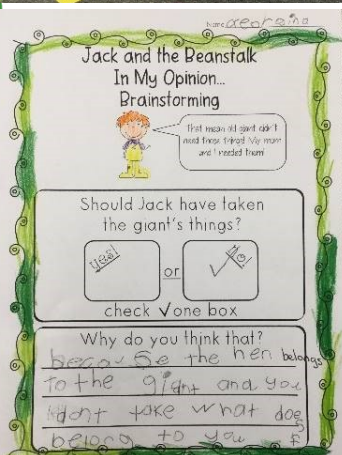 Name Georgina
Jack and the Beanstalk
In My Opinion...
Brainstorming
That mean old giant didn't
need those things! My mom
and I needed them!
Should Jack have taken
the giant's things?
yes!
or
no
check ✓ one box
Why do you think that?
becouse the hen belongs
to the giant and you
dont take what does
belong to you